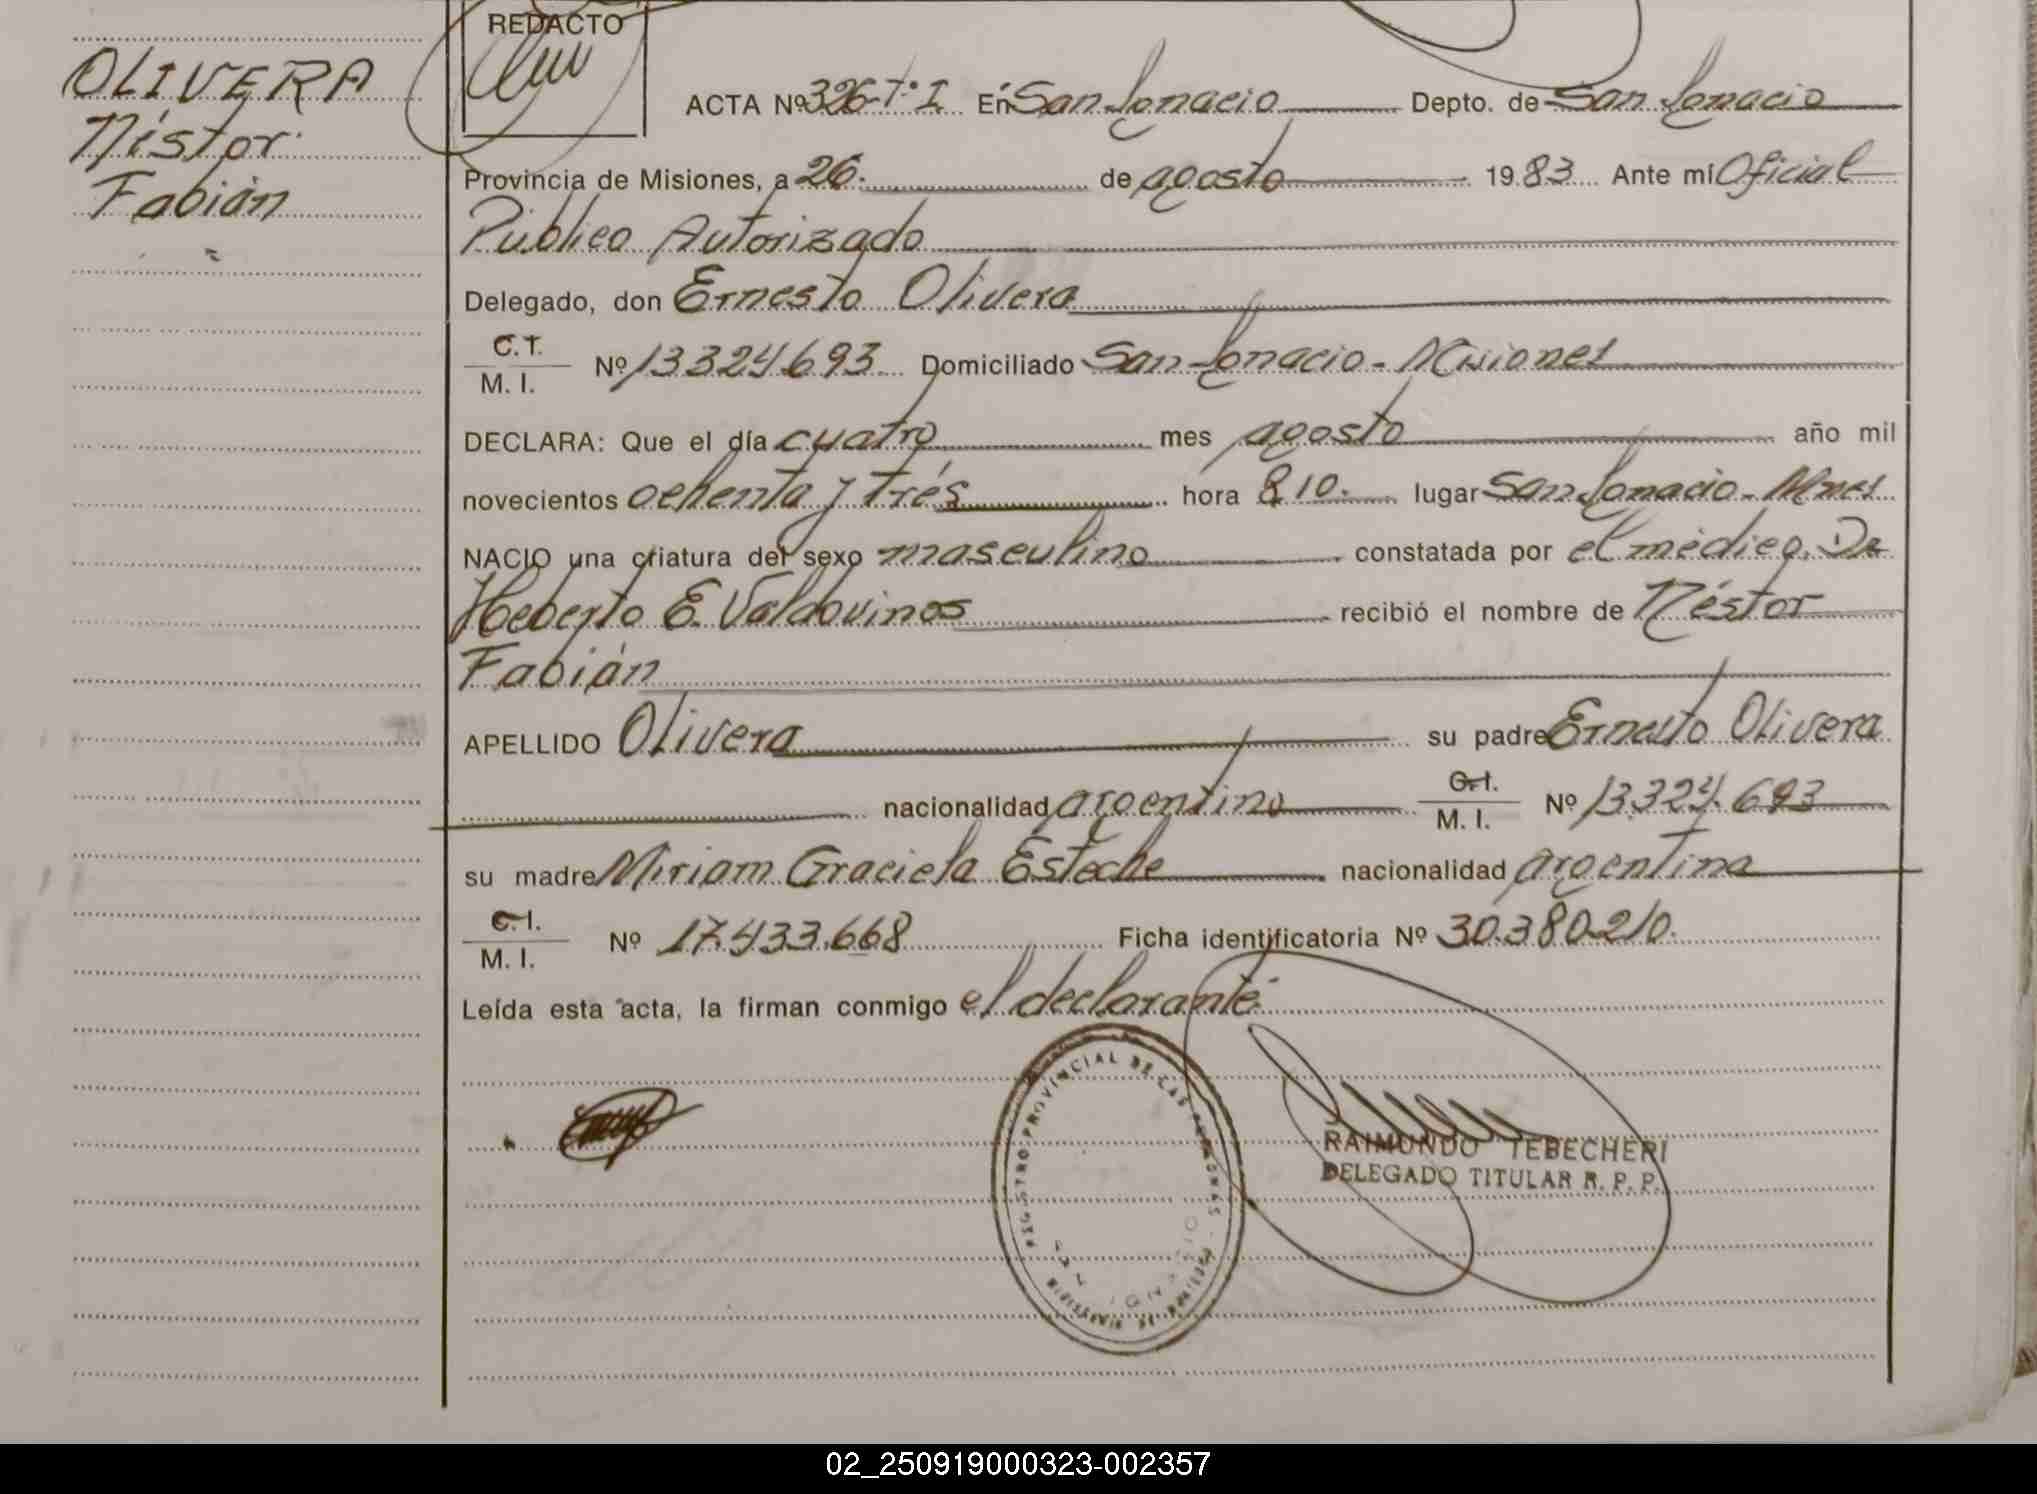 REDACTO
OLIVERA
Néstor
Fabián
ACTA Nº 326-Tº I En San Ignacio Depto. de San Ignacio
Provincia de Misiones, a 26 de agosto 1983 Ante mí Oficial
Público Autorizado
Delegado, don Ernesto Olivera
C.I.
M. I. Nº 13324693 Domiciliado San Ignacio - Misiones
DECLARA: Que el día cuatro mes agosto año mil
novecientos ochenta y trés hora 8 10 lugar San Ignacio - Mnes
NACIO una criatura del sexo masculino constatada por el médico Dr
Heberto E. Valdovinos recibió el nombre de Néstor
Fabián
APELLIDO Olivera su padre Ernesto Olivera
nacionalidad argentino C.I.
M. I. Nº 13.324.693
su madre Miriam Graciela Esteche nacionalidad argentina
C.I.
M. I. Nº 17.433.668 Ficha identificatoria Nº 30.380.210.
Leída esta acta, la firman conmigo el declarante
REGISTRO PROVINCIAL DE LAS PERSONAS
SAN IGNACIO
RAIMUNDO TEBECHERI
DELEGADO TITULAR R. P. P.
02_250919000323-002357